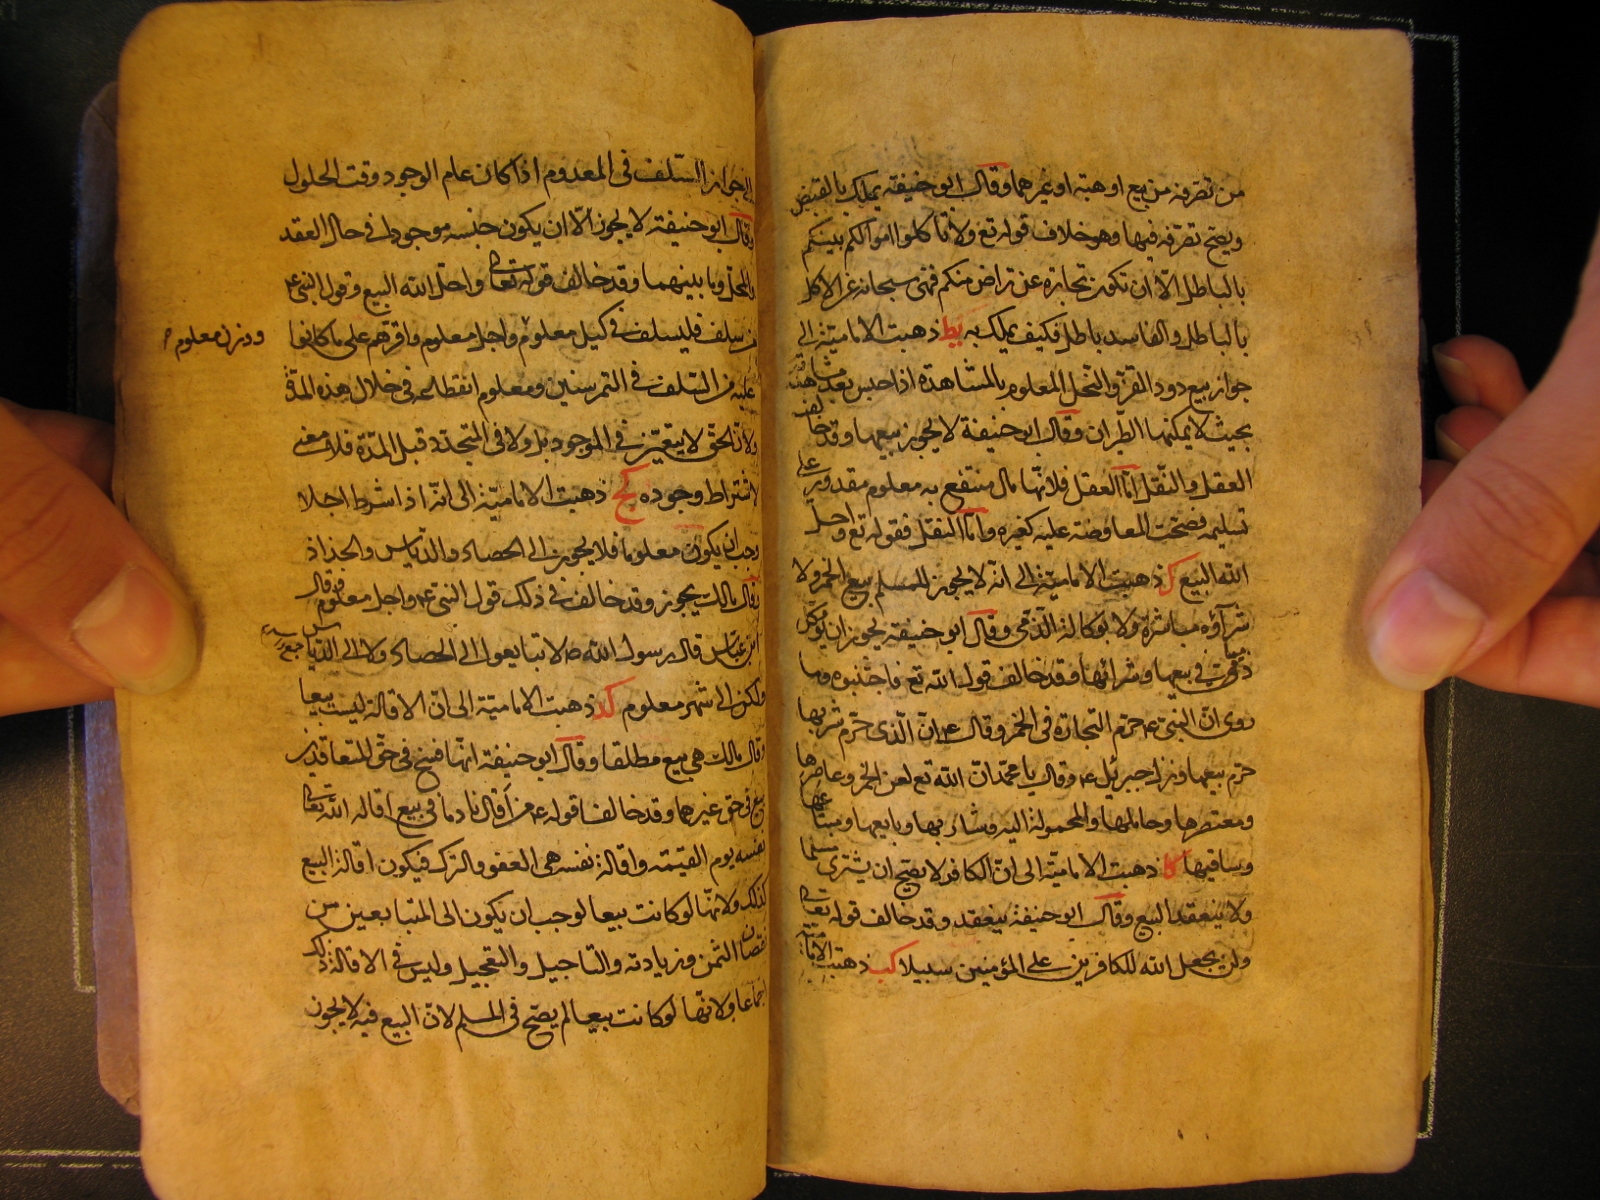 من تصرفه من بيع او هبة او غيرهما وقال ابو حنيفة يملك بالقبض
ويصح تصرفه فيها وهو خلاف قوله تع ولا تأكلوا اموالكم بينكم
بالباطل الا ان تكون تجارة عن تراض منكم فنهى سبحانه عن الاكل
بالباطل والفاسد باطل فكيف يملك به يط ذهبت الامامية الى
جواز بيع دود القز والنحل المعلوم بالمشاهدة اذا حبس بعد مشاهدته
بحيث لا يمكنها الطيران وقال ابو حنيفة لا يجوز بيعها وقد خالف
العقل والنقل اما العقل فلانها مال منتفع به معلوم مقدور على
تسليمه فصحت المعاوضة عليه كغيره واما النقل فقوله تع واحل
الله البيع ك ذهبت الامامية الى انه لا يجوز للمسلم بيع الخمر ولا
شرآؤه مباشرة ولا بوكالة الذمى وقال ابو حنيفة يجوز ان يوكل
ذميا فى بيعها وشرائها وقد خالف قول الله تع فاجتنبوه وما
روى ان النبى ع حرم التجارة فى الخمر وقال ع ان الذى حرم شربها
حرم بيعها ونزل جبرئيل ع وقال يا محمد ان الله تع لعن الخمر وعاصرها
ومعتصرها وحاملها والمحمولة اليه وشاربها وبايعها ومبتاعها
وساقيها كا ذهبت الامامية الى ان الكافر لا يصح ان يشترى مسلما
ولا ينعقد البيع وقال ابو حنيفة ينعقد وقد خالف قوله تعالى
ولن يجعل الله للكافرين على المؤمنين سبيلا كب ذهبت الامامية
الى جواز السلف فى المعدوم اذا كان عام الوجود وقت الحلول
وقال ابو حنيفة لا يجوز الا ان يكون جنسه موجودا فى حال العقد
والمحل وما بينهما وقد خالف قوله تعالى واحل الله البيع وقول النبى ع
من سلف فليسلف فى كيل معلوم واجل معلوم واقرهم على ما كانوا
ووزن معلوم
عليه من السلف فى التمر سنين ومعلوم انقطاعه فى خلال هذه المدة
ولان الحق لا يتعين فى الموجود بل ولا فى المتجدد قبل المدة فلا معنى
لاشتراط وجوده كج ذهبت الامامية الى انه اذا شرط اجلا
وجب ان يكون معلوما فلا يجوز الى الحصاد والدياس والجذاذ
وقال مالك يجوز وقد خالف فى ذلك قول النبى ع واجل معلوم وقال
ابن عباس قال رسول الله ص لا تبايعوا الى الحصاد ولا الى الدياس
ولكن الى شهر معلوم كد ذهبت الامامية الى ان الاقالة ليست بيعا
وقال مالك هى بيع مطلقا وقال ابو حنيفة انها فسخ فى حق المتعاقدين
بيع فى حق غيرهما وقد خالفا قوله ع من أقال نادما فى بيع اقاله الله تعالى
نفسه يوم القيمة واقالة نفسه هى العفو والترك فيكون اقالة البيع
كذلك ولانها لو كانت بيعا لوجب ان يكون الى المتبايعين من
نقصان الثمن وزيادته والتاجيل والتعجيل وليس فى الاقالة ذلك
اجماعا ولانها لو كانت بيعا لم يصح فى المسلم لان البيع فيه لا يجوز